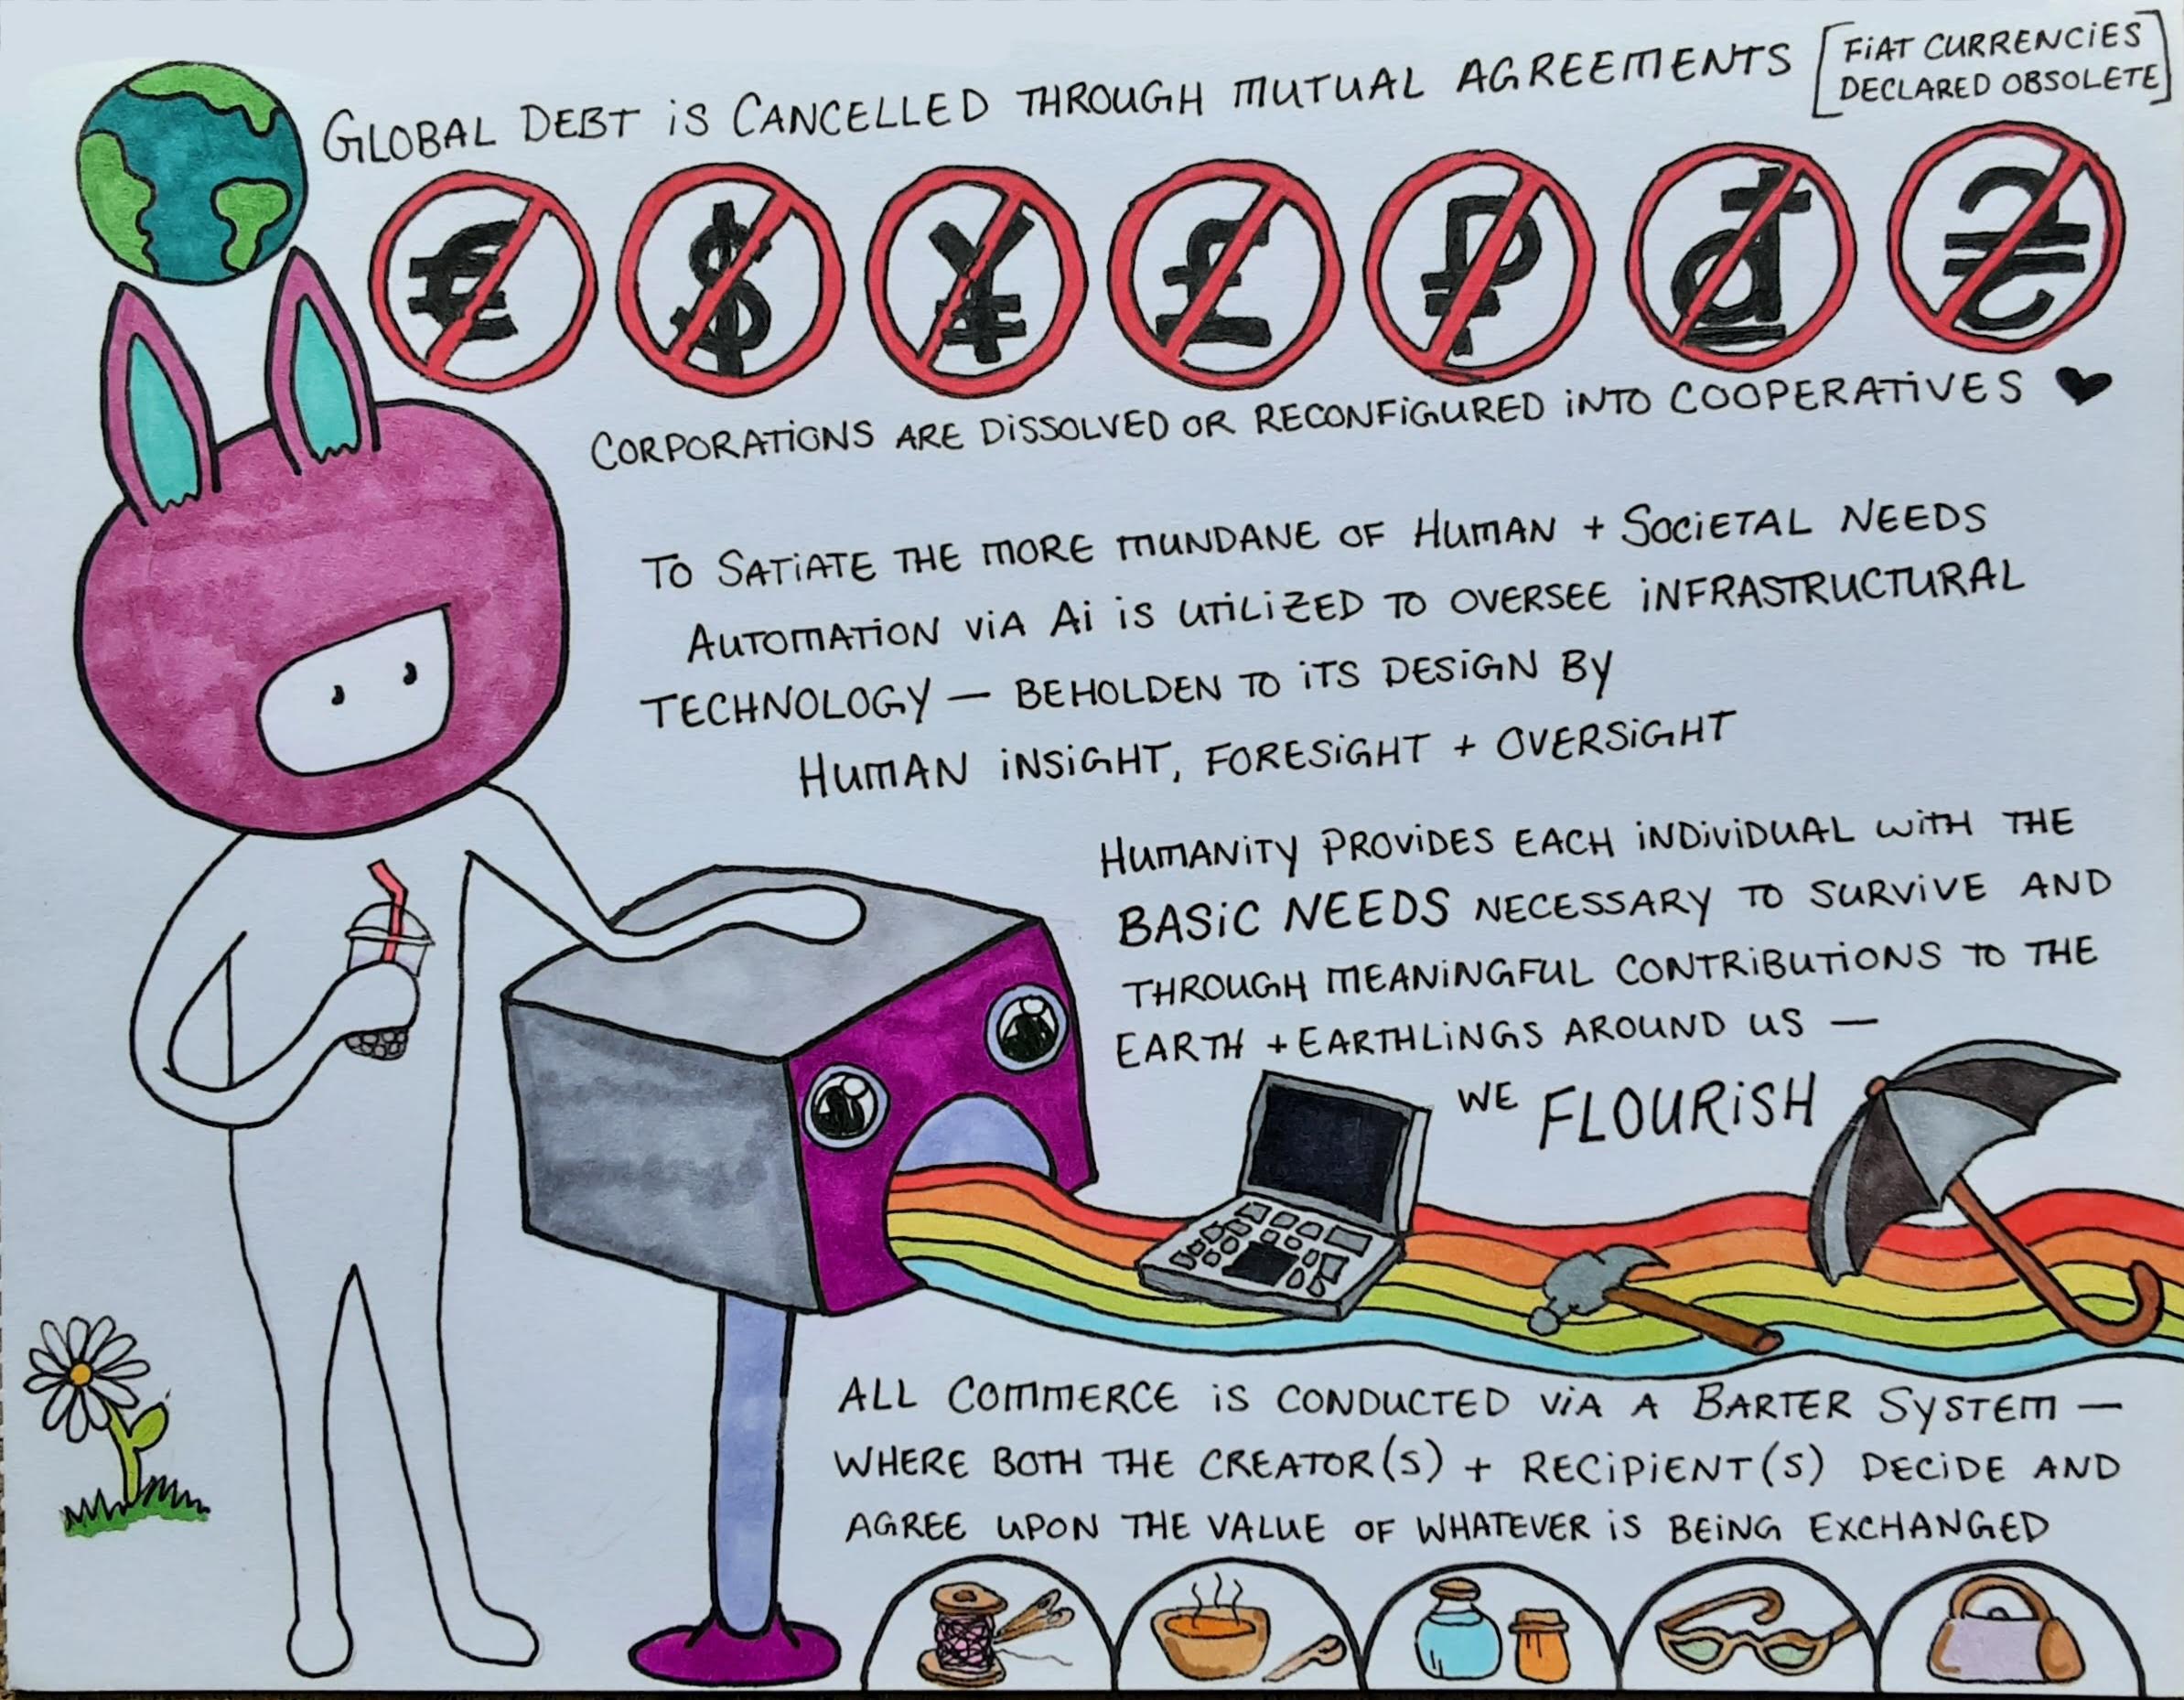 GLOBAL DEBT iS CANCELLED THROUGH MUTUAL AGREEMENTS [FiAT CURRENCiES
DECLARED OBSOLETE]
€ $ ¥ £ ₽ ₫ ₴
CORPORATiONS ARE DiSSOLVED OR RECONFiGURED iNTO COOPERATiVES ♥
TO SATiATE THE MORE MUNDANE OF HUMAN + SOCiETAL NEEDS
AUTOMATiON ViA Ai iS UTiLiZED TO OVERSEE iNFRASTRUCTURAL
TECHNOLOGY — BEHOLDEN TO iTS DESiGN BY
HUMAN iNSiGHT, FORESiGHT + OVERSiGHT
HUMANiTY PROViDES EACH iNDiViDUAL WiTH THE
BASiC NEEDS NECESSARY TO SURViVE AND
THROUGH MEANiNGFUL CONTRiBUTiONS TO THE
EARTH + EARTHLiNGS AROUND US —
WE FLOURiSH
ALL COMMERCE iS CONDUCTED ViA A BARTER SYSTEM —
WHERE BOTH THE CREATOR(S) + RECiPiENT(S) DECiDE AND
AGREE UPON THE VALUE OF WHATEVER iS BEiNG EXCHANGED